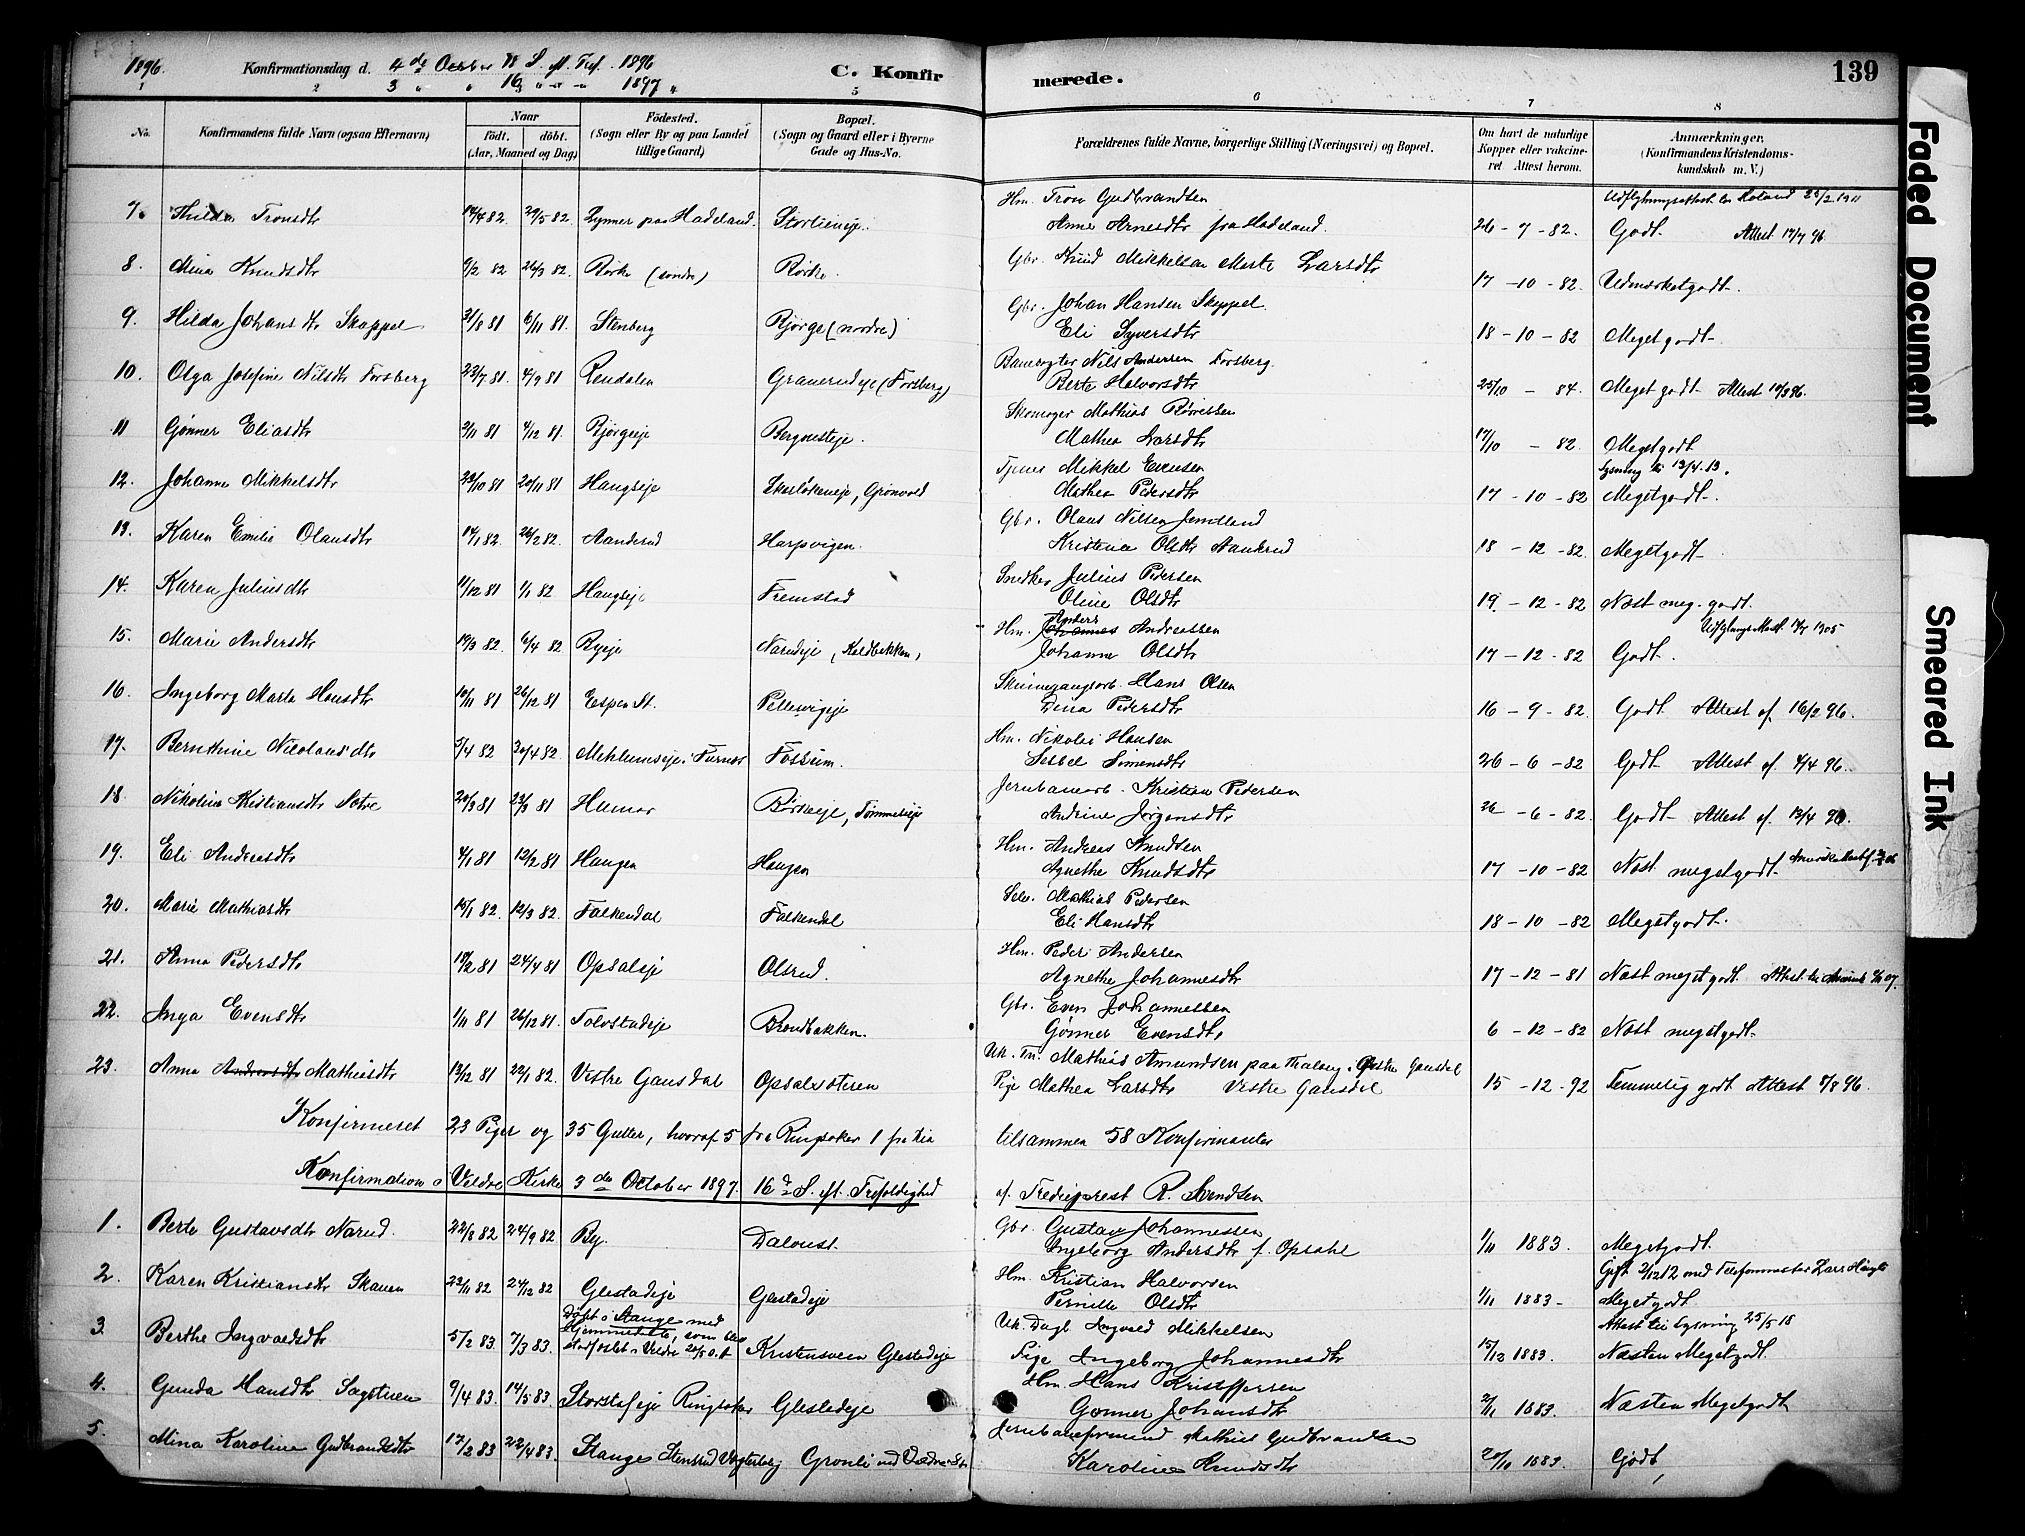 1896. Konfirmationsdag d. 4de October 18 S. e. Tref. 1896
3 " " 16 " " " 1897 "
C. Konfirmerede. 139
1 2 3 4 5 6 7 8
No. Konfirmandens fulde Navn (ogsaa Efternavn) Naar födt. döbt. (Aar, Maaned og Dag) Födested. (Sogn eller By og paa Landet tillige Gaard) Bopæl. (Sogn og Gaard eller i Byerne Gade og Hus-No. Forældrenes fulde Navne, borgerlige Stilling (Næringsvei) og Bopæl. Om havt de naturlige Kopper eller vakcineret Attest herom. Anmærkninger. (Konfirmandens Kristendomskundskab m. V.)
7. Thilda Tronsdtr 14/4 82 29/5 82 Lynner paa Hadeland Storlieneje. Hm. Tron Gudbrandsen
Anne Arnesdtr fra Hadeland. 26-7-82. Godt. Attest 17/7 96
8. Mina Knudsdtr 9/2 82 26/3 82. Rörke (söndre) Rörke. Gbr. Knud Mikkelsen Marte Larsdtr 17-10-82. Udmærketgodt.
9. Hilda Johansdtr Skappel 31/8 81 6/11 81. Stenberg Bjørge (nordre) Gbr. Johan Hansen Skappel
Eli Syversdtr 18-10-82 Megetgodt.
10. Olga Josefine Nilsdtr Forsberg 22/7 81. 4/9 81 Rendalen Graverudeje (Forsberg) Banevogter Nils Andersen Forsberg.
Berte Halvorsdtr 25/10 - 84. Meget godt Attest 10/3 96.
11 Gønner Eliasdtr 2/11 81 4/12 81. Bjørgeeje Bergundteje. Skomager Mathias
Mathea Larsdtr 17/10 - 82 Megetgodt
Lysning 13/4-13.
12. Johanne Mikkelsdtr 23/10 81 20/11 81 Haugseje Skarlökeneje, Grönvold Tjener Mikkel Evensen
Mathea Pedersdtr 17-10-82 Megetgodt.
13. Karen Emilie Olausdtr 14/1 82. 26/2 82. Aanderud Harpvigen. Gbr. Olaus Nilsen Jemtland
Kristena Olsdtr Aanderud 18-12-82 Megetgodt
14. Karen Juliusdtr 11/12 81 1/1 82 Haugseje Fremstad Snedker Julius Pedersen
Oline Olsdtr 19-12-82 Næst meg. godt.
15. Marie Andersdtr 19/3 82. 6/4 82 Ryeje Narudeje, (Koldbekken, Hm. Anders Andreassen
Johanne Olsdtr 17-12-82 Godt.
16. Ingeborg Marta Hansdtr 10/11 81 26/12 81 Espen St. Pellervigeje Hans Olsen
Dina Pedersdtr 16-9-82. Godt Attest af 16/2 96.
17. Bernthine Nicolausdtr 5/4 82 30/4 82. Mehlumseje i Furnes Fossum. Hm. Nikolai Hansen
Sesbel Simensdtr 26-6-82 Godt Attest af 9/4 96.
18. Nikoline Kristiansdtr Sotre 20/3 81 23/3 81 Hamar Börkeeje, Tömmereje Jernbanearb. Kristian Pedersen
Andrine Jørgensdtr 26-6-82. Godt Attest af 13/4 96.
19. Eli Andreasdtr 4/1 81 13/2 81 Haugen Haugen Hm. Andreas Knudsen
Agnethe Knudsdtr 17-10-82 Næst megetgodt.
20. Marie Mathiasdtr 15/1 82. 12/3 82. Falkendal Falkendal Selv. Mathias Pedersen
Eli Hansdtr 18-10-82 Megetgodt.
21. Anna Pedersdtr 18/2 81 24/4 81 Opsalseje Olsrud. Hm. Peder Andersen
Agnethe Johannesdtr 17-12-81 Næst megetgodt.
22. Inga Evensdtr 1/11 81 26/12 81. Tolvstadeje Brendbakken. Gbr. Even Johannessen
Gønner Evensdtr 6-12-82 Næst megetgodt.
23. Anna Andersdtr Mathiasdtr 13/12 81 22/1 82. Vestre Gausdal Opsalsæteren Uk. Tn. Mathias Amundsen paa Thalberg i Østre Gausdal
Pige Mathea Larsdtr Vestre Gausdal 15-12-92 Temmelig godt Attest 8/8 96.
Konfirmeret 23 Piger og 35 Gutter, hvoraf 5 fra Ringsaker 1 fra Kra tilsammen 58 Konfirmanter
Konfirmation i Veldre Kirke 3die October 1897 16de S. eft. Trefoldighed af Tredieprest R. Svendsen
1. Berte Gustavsdtr Narud. 22/8 82 24/9 82 By. Daloust. Gbr. Gustav Johannessen
Ingeborg Andersdtr f. Opsahl 1/11 1883. Megetgodt.
2. Karen Kristiansdtr Skauen 23/11 82 24/12 82 Glestadeje Glestadeje Hm. Kristian Halvorsen
Pernille Olsdtr 1/11 1883 Megetgodt
Attest til Lysning 25/5 18
3. Berthe Ingvaldsdtr 5/2 83. 7/3 83. Døbt i Stange med Hjemmedåb, som blev stadfæstet i Veldre Kristensveen Glestadeje Uk. Dagl. Ingvald Mikkelsen
Pige Ingeborg Johannesdtr 15/12 1883. Næsten Megetgodt.
4. Gunda Hansdtr Sagstuen 9/4 83. 14/5 83. Storstadeje Ringsaker Glestadeje Hm. Hans Kristoffersen
Gønner Johansdtr 2/11 1883. Næsten Megetgodt
5. Mina Karoline Gudbrandsdtr 17/2 83 22/4 83. Stange Stensrud Vogterbolig Gronli ved Veldre St. Jernbaneformand Mathias Gudbrandsen
Karoline Knudsdtr 20/10 1883. Godt,
Faded Document
Smeared Ink